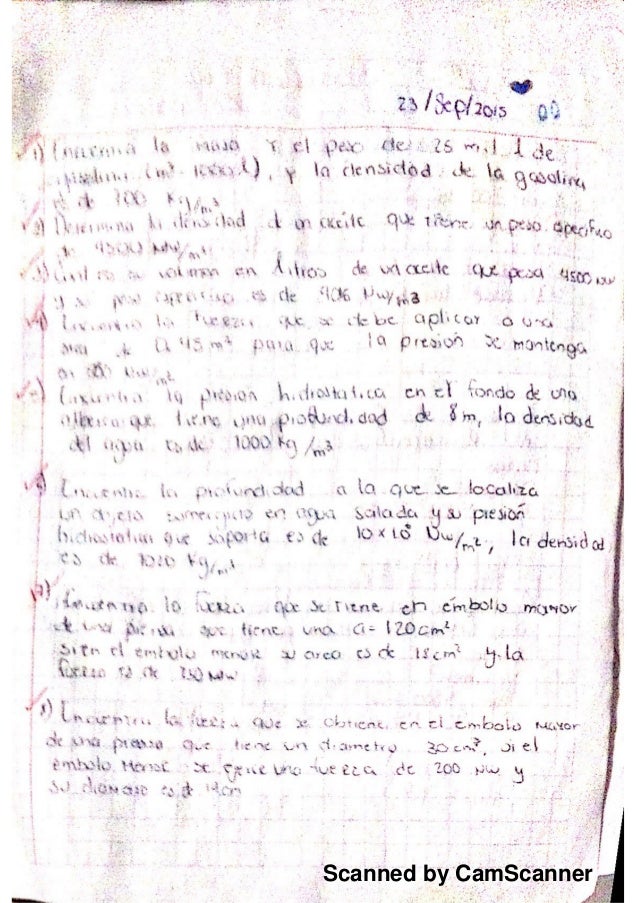 23/Sep/2015
1) Encuentra la masa y el peso de 25 mil l de
gasolina (m³ 1000 l), y la densidad de la gasolina
es de 700 Kg/m³
2) Determina la densidad de un aceite que tiene un peso especifico
de Nw/m³
3) Cual es su volumen en litros de un aceite que pesa 4500 nw
y su peso especifico es de Nw/m3
4) Encuentra la fuerza que se debe aplicar a una
area de 0.45 m² para que la presión se mantenga
en Nw/m²
5) Encuentra la presion hidrostatica en el fondo de una
alberca que tiene una profundidad de 8 m, la densidad
del agua es de 1000 Kg/m³
Encuentra la profundidad a la que se localiza
un objeto sumergido en agua salada y su presión
hidrostatica que soporta es de Nw/m², la densidad
es de 1020 Kg/m³
7) Encuentra la fuerza que se tiene en embolo mayor
de una prensa que tiene una a= 120 cm²
si en el embolo menor su area es de 15 cm² y la
fuerza es de Nw
8) Encuentra la fuerza que se obtiene en el embolo mayor
de una prensa que tiene un diametro 30 cm², si el
embolo menor se ejerce una fuerza de 200 Nw y
su diametro es de cm
Scanned by CamScanner